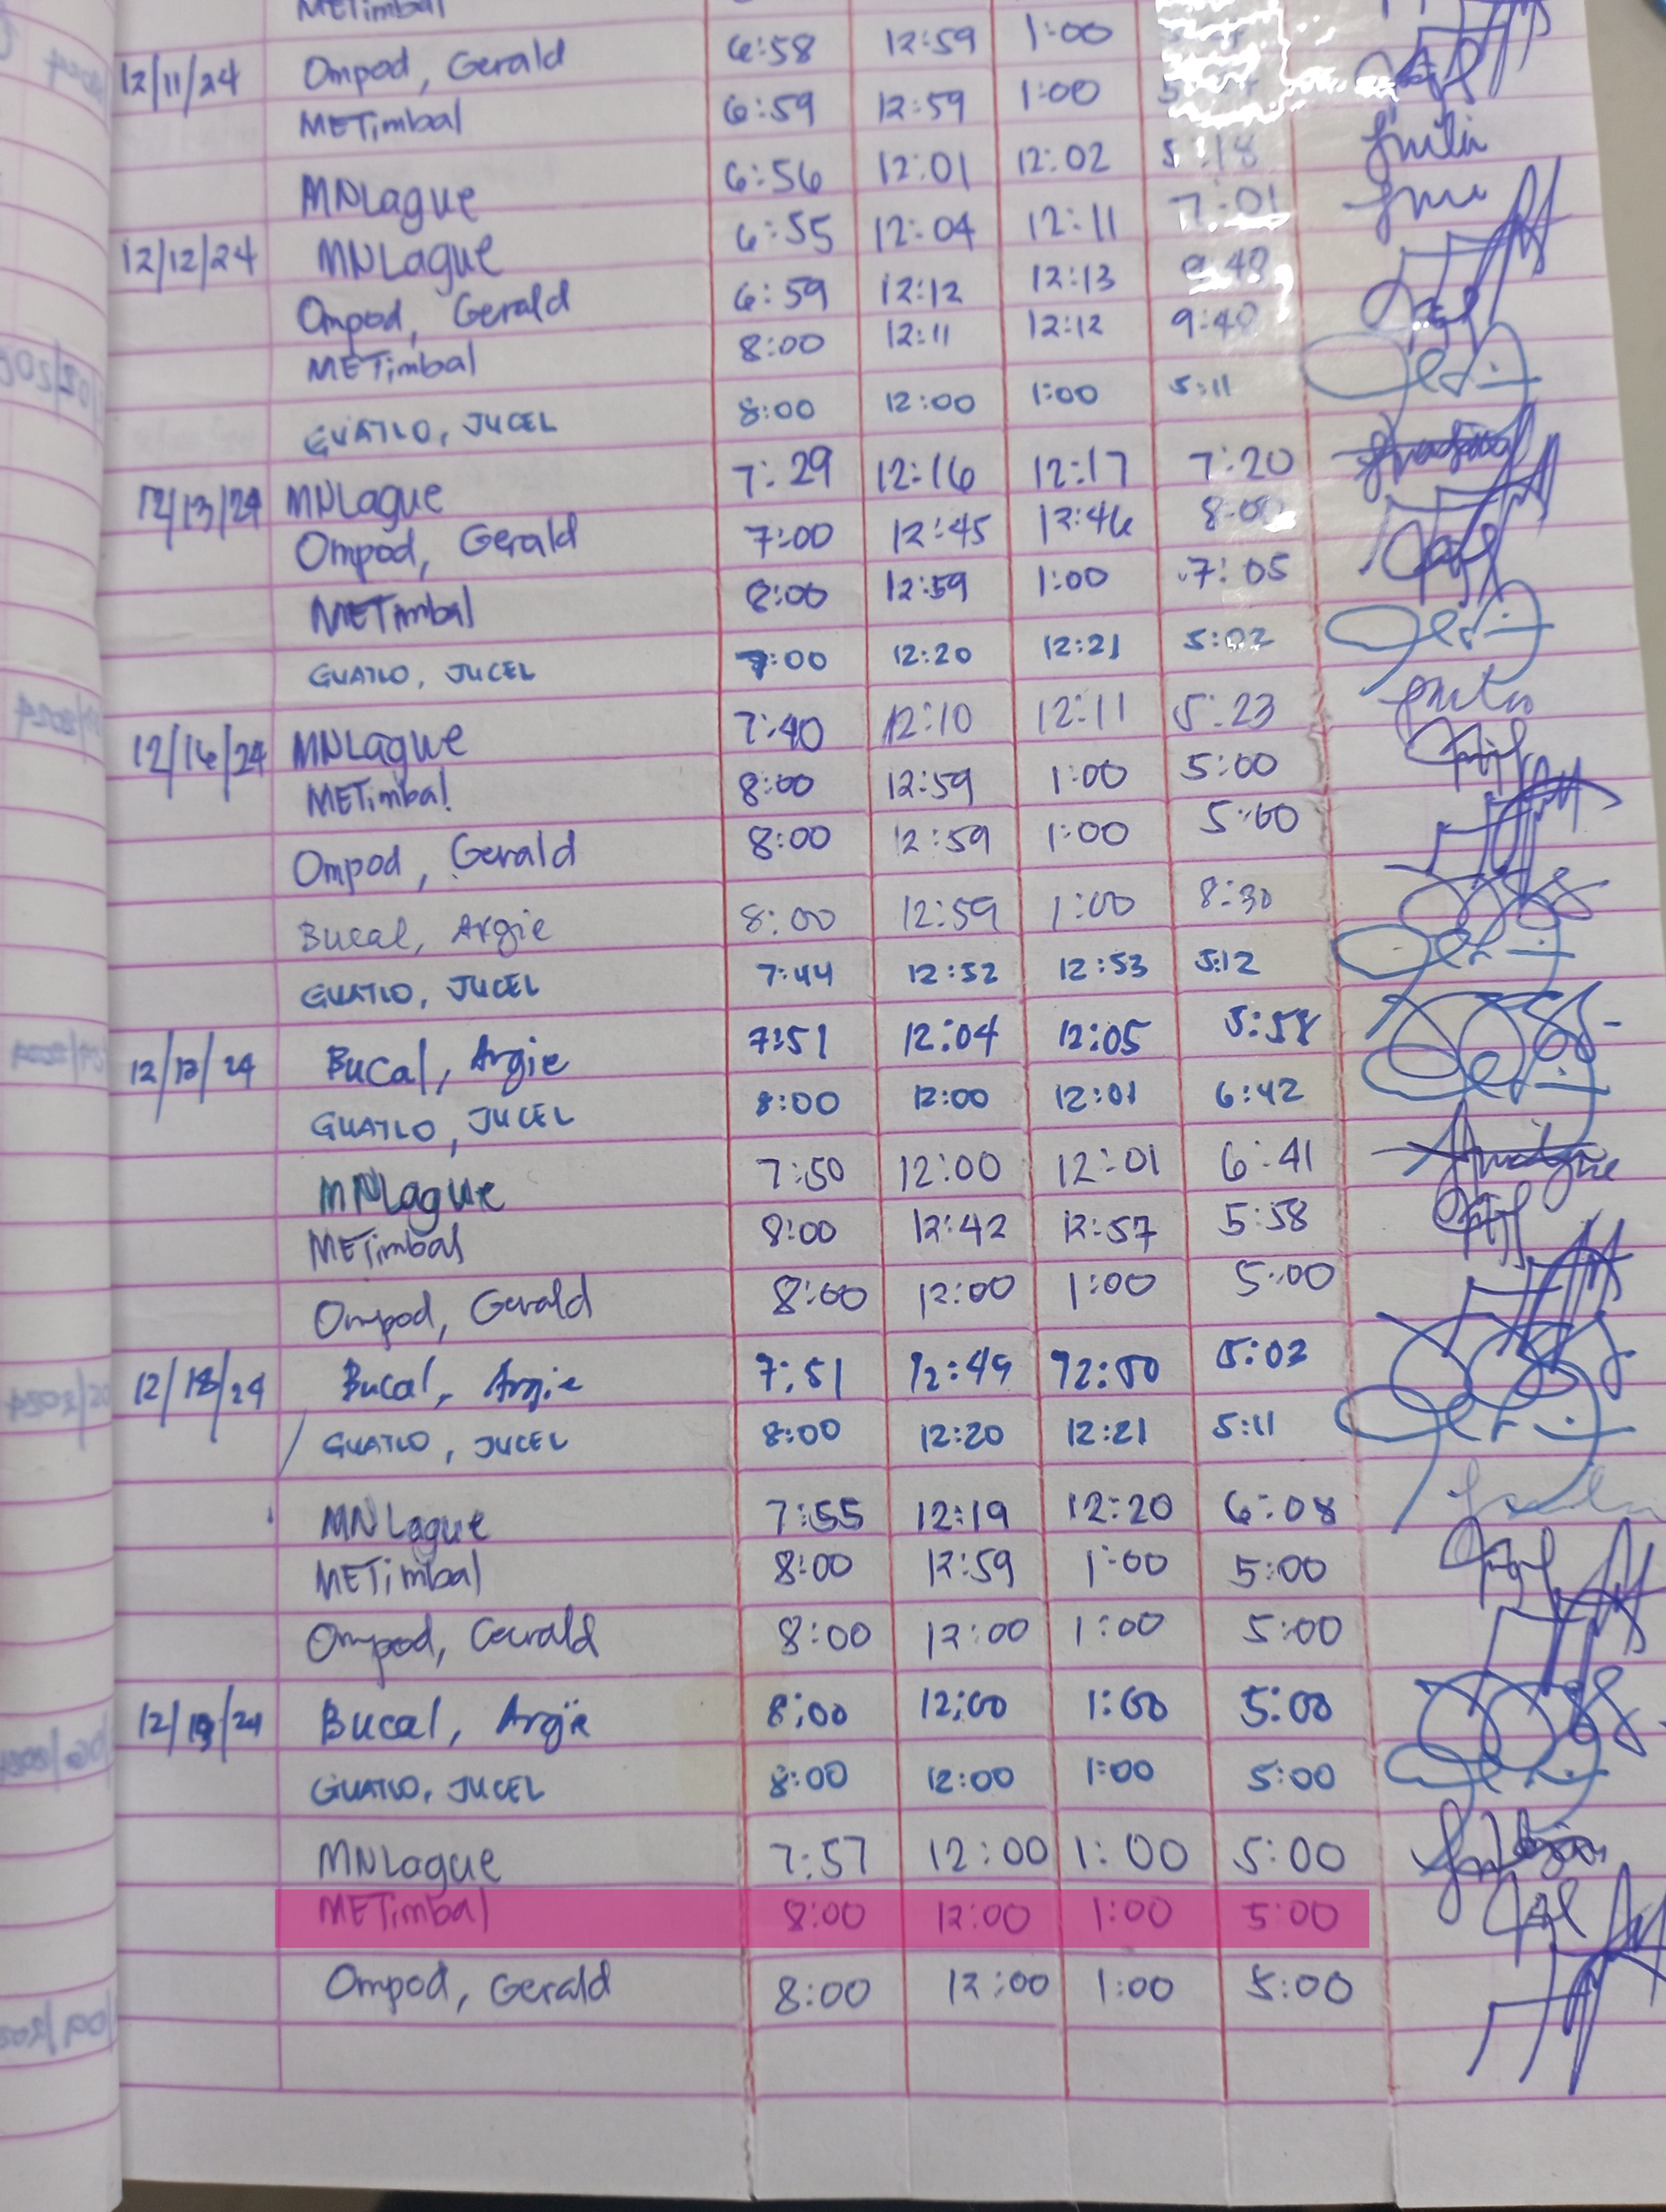 METimbal
12/11/24 Ompod, Gerald 6:58 12:59 1:00
METimbal 6:59 12:59 1:00
MNLague 6:56 12:01 12:02 5:18
12/12/24 MNLague 6:55 12:04 12:11 7:01
Ompod, Gerald 6:59 12:12 12:13 9:48
METimbal 8:00 12:11 12:12 9:48
GUATLO, JUCEL 8:00 12:00 1:00 5:11
12/13/24 MNLague 7:29 12:16 12:17 7:20
Ompod, Gerald 7:00 12:45 12:46 8:00
METimbal 8:00 12:59 1:00 7:05
GUATLO, JUCEL 7:00 12:20 12:21 5:02
12/16/24 MNLague 7:40 12:10 12:11 5:23
METimbal 8:00 12:59 1:00 5:00
Ompod, Gerald 8:00 12:59 1:00 5:00
Bucal, Argie 8:00 12:59 1:00 8:30
GUATLO, JUCEL 7:44 12:52 12:53 5:12
Bucal, Argie 7:51 12:04 12:05 5:58
GUATLO, JUCEL 8:00 12:00 12:01 6:42
MNLague 7:50 12:00 12:01 6:41
METimbal 8:00 12:42 12:57 5:58
Ompod, Gerald 8:00 12:00 1:00 5:00
12/18/24 Bucal, Argie 7:51 12:49 12:50 5:02
GUATLO, JUCEL 8:00 12:20 12:21 5:11
MNLague 7:55 12:19 12:20 6:08
METimbal 8:00 12:59 1:00 5:00
Ompod, Gerald 8:00 12:00 1:00 5:00
12/19/24 Bucal, Argie 8:00 12:00 1:00 5:00
GUATLO, JUCEL 8:00 12:00 1:00 5:00
MNLague 7:57 12:00 1:00 5:00
METimbal 8:00 12:00 1:00 5:00
Ompod, Gerald 8:00 12:00 1:00 5:00